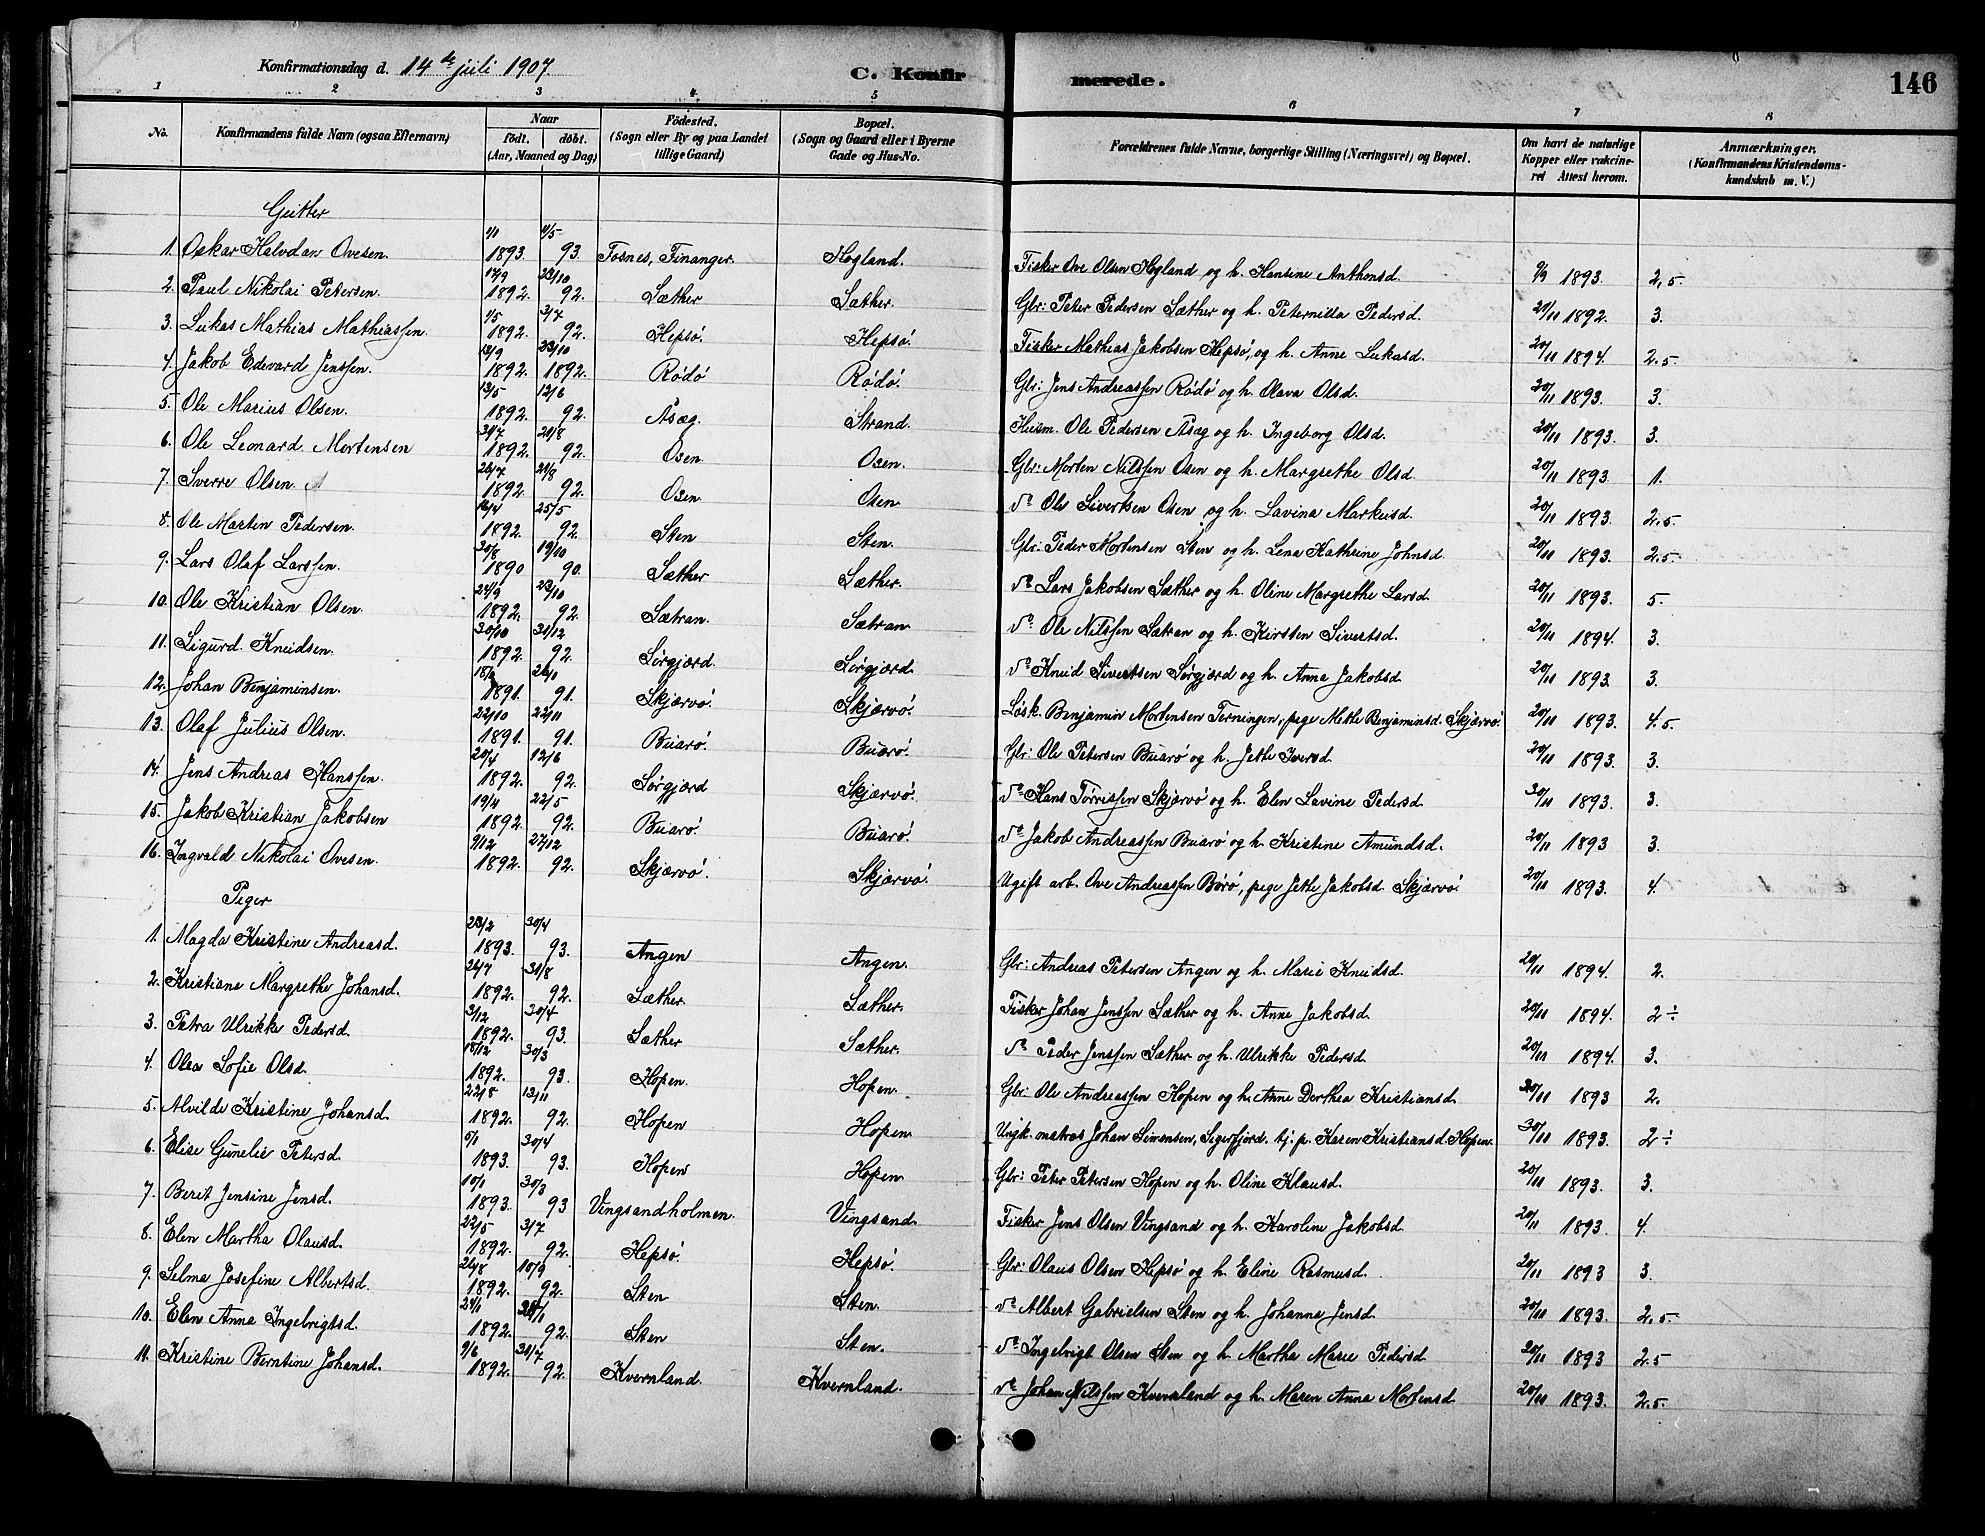 Konfirmationsdag d. 14de juli 1907.
C. Konfirmerede.
146
1 2 3 4 5 6 7 8
No. | Konfirmandens fulde Navn (ogsaa Efternavn) | Naar født. døbt. (Aar, Maaned og Dag) | Fødested. (Sogn eller By og paa Landet tillige Gaard) | Bopæl. (Sogn og Gaard eller i Byerne Gade og Hus-No. | Forældrenes fulde Navne, borgerlige Stilling (Næringsvei) og Bopæl. | Om havt de naturlige Kopper eller vakcineret Attest herom. | Anmærkninger, (Konfirmandens Kristendomskundskab m. V.)
Gutter
1. Oskar Halvdan Ovesen. 1893. 4/5 93. Fosnes, Finanger. Hogland. Fisker Ove Olsen Hogland og h. Hansine Anthonsd. 9/9 1893. 2,5.
2. Paul Nikolai Petersen. 17/9 1892. 23/10 92. Sæther Sæther. Gbr: Peter Pedersen Sæther og h. Peternilla Pedersd. 21/11 1892. 3.
3. Lukas Mathias Mathiassen. 1/5 1892. 3/7 92. Hepsø. Hepsø. Fisker Mathias Jakobsen Hepsø, og h. Anne Lukasd. 20/11 1894. 2,5
4. Jakob Edevard Jenssen. 13/9 1892. 23/10 1892. Rødø Rødø. Gbr: Jens Andreassen Rødø og h. Olava Olsd. 20/11 1893. 3.
5. Ole Marius Olsen. 13/5 1892. 12/6 92. Åsæg. Strand. Husm. Ole Pedersen Åsæg og h. Ingeborg Olsd. 20/11 1893. 3.
6. Ole Leonard Mortensen 31/7 1892. 21/8 92. Osen. Osen. Gbr: Morten Nilssen Osen og h. Margrethe Olsd. 20/11 1893. 1.
7. Sverre Olsen. 26/7 1892. 21/8 92. Osen. Osen do Ole Sivertsen Osen og h. Lavina Markusd. 20/11 1893. 2,5.
8. Ole Martin Pedersen. 16/4 1892. 25/5 92. Sten Sten. Gbr: Peder Mortensen Sten og h. Lena Kathrine Johnsd. 20/11 1893. 2,5.
9. Lars Olaf Larssen. 30/8 1890 19/10 90. Sæther Sæther. do Lars Jakobsen Sæther og h. Oline Margrethe Larsd. 20/11 1893. 5.
10. Ole Kristian Olsen. 24/9 1892. 23/10 92. Sætran. Sætran do Ole Nilssen Sætran og h. Kirsten Sivertsd. 20/11 1894. 3.
11. Sigurd Knudsen. 30/10 1892. 31/12 92. Sørgjærd. Sørgjærd do Knud Sivertsen Sørgjærd og h. Anna Jakobsd. 20/11 1893. 3.
12. Johan Benjaminsen. 1891. 91. Skjærvø. Skjærvø. Løsk. Benjamin Mortensen Terningen, pige Mette Benjaminsd. Skjærvø. 20/11 1893. 4.5
13. Olaf Julius Olsen. 22/10 1891. 22/11 91. Buarø. Buarø. Gbr: Ole Petersen Buarø og h. Jette Iversd. 20/11 1893. 3.
14. Jens Andreas Hanssen. 20/4 1892. 12/6 92. Sørgjærd Skjærvø. do Hans Tørrissen Skjærvø og h. Elen Lavine Pedersd. 30/11 1893. 3.
15. Jakob Kristian Jakobsen 19/4 1892. 22/5 92. Buarø. Buarø. do Jakob Andreassen Buarø og h. Kristine Amundsd. 20/11 1893 3.
16. Ingvald Nikolai Ovesen. 9/12 1892. 27/12 92. Skjærvø. Skjærvø. Ugift arb. Ove Andreassen Børø, pige Jette Jakobsd. Skjærvø 20/11 1893. 4.
Piger
1. Magda Kristine Andreasd. 23/2 1893. 30/4 93. Angen Angen. Gbr: Andreas Petersen Angen og h. Marie Knudsd. 20/11 1894. 2.
2. Kristiane Margrethe Johansd. 26/7 1892. 31/8 92. Sæther. Sæther. Fisker Johan Jenssen Sæther og h. Anne Jakobsd. 20/11 1894. 2÷
3. Petra Ulrikke Pedersd. 3/12 1892. 30/4 93. Sæther Sæther. do Peder Jenssen Sæther og h. Ulrikke Pedersd. 20/11 1894. 3.
4. Olea Sofie Olsd. 18/12 1892. 30/3 93. Hopen. Hopen. Gbr: Ole Andreassen Hopen og h. Anne Dorthea Kristiansd. 20/11 1893 2.
5. Alvilde Kristine Johansd. 22/8 1892. 13/11 92. Hopen Hopen. Ungk. matros Johan Sivensen, Sigerfjord. tj. p. Karen Kristiansd. Hopen. 30/11 1893. 2÷
6. Elise Gunelie Petersd. 6/1 1893. 30/4 93. Hopen Hopen. Gbr: Peter Petersen Hopen og h. Oline Klausd. 20/11 1893. 3.
7. Berit Jensine Jensd. 10/1 1893. 30/3 93 Vingsandholmen. Vingsand. Fisker Jens Olsen Vingsand og h. Karoline Jakobsd. 20/11 1893 4.
8. Elen Martha Olausd. 22/5 1892. 3/7 92. Hepsø. Hepsø. Gbr: Olaus Olsen Hepsø og h. Eline Rasmusd. 20/11 1893 3.
9. Selma Josefine Albertsd. 26/8 1892. 10/9 92. Sten Sten. do Albert Gabrielsen Sten og h. Johanna Jensd. 20/11 1893. 2,5.
10. Elen Anna Ingebrigtsd. 24/1 1892. 92. Sten Sten. do Ingebrigt Olsen Sten og h. Martha Marie Pedersd. 20/11 1893 2,5
11. Kristine Berntine Johansd. 9/6 1892. 31/7 92. Kvernland. Kvernland. do Johan Nilssen Kvernland og h. Maren Anna Mortensd. 20/11 1893. 2,5.